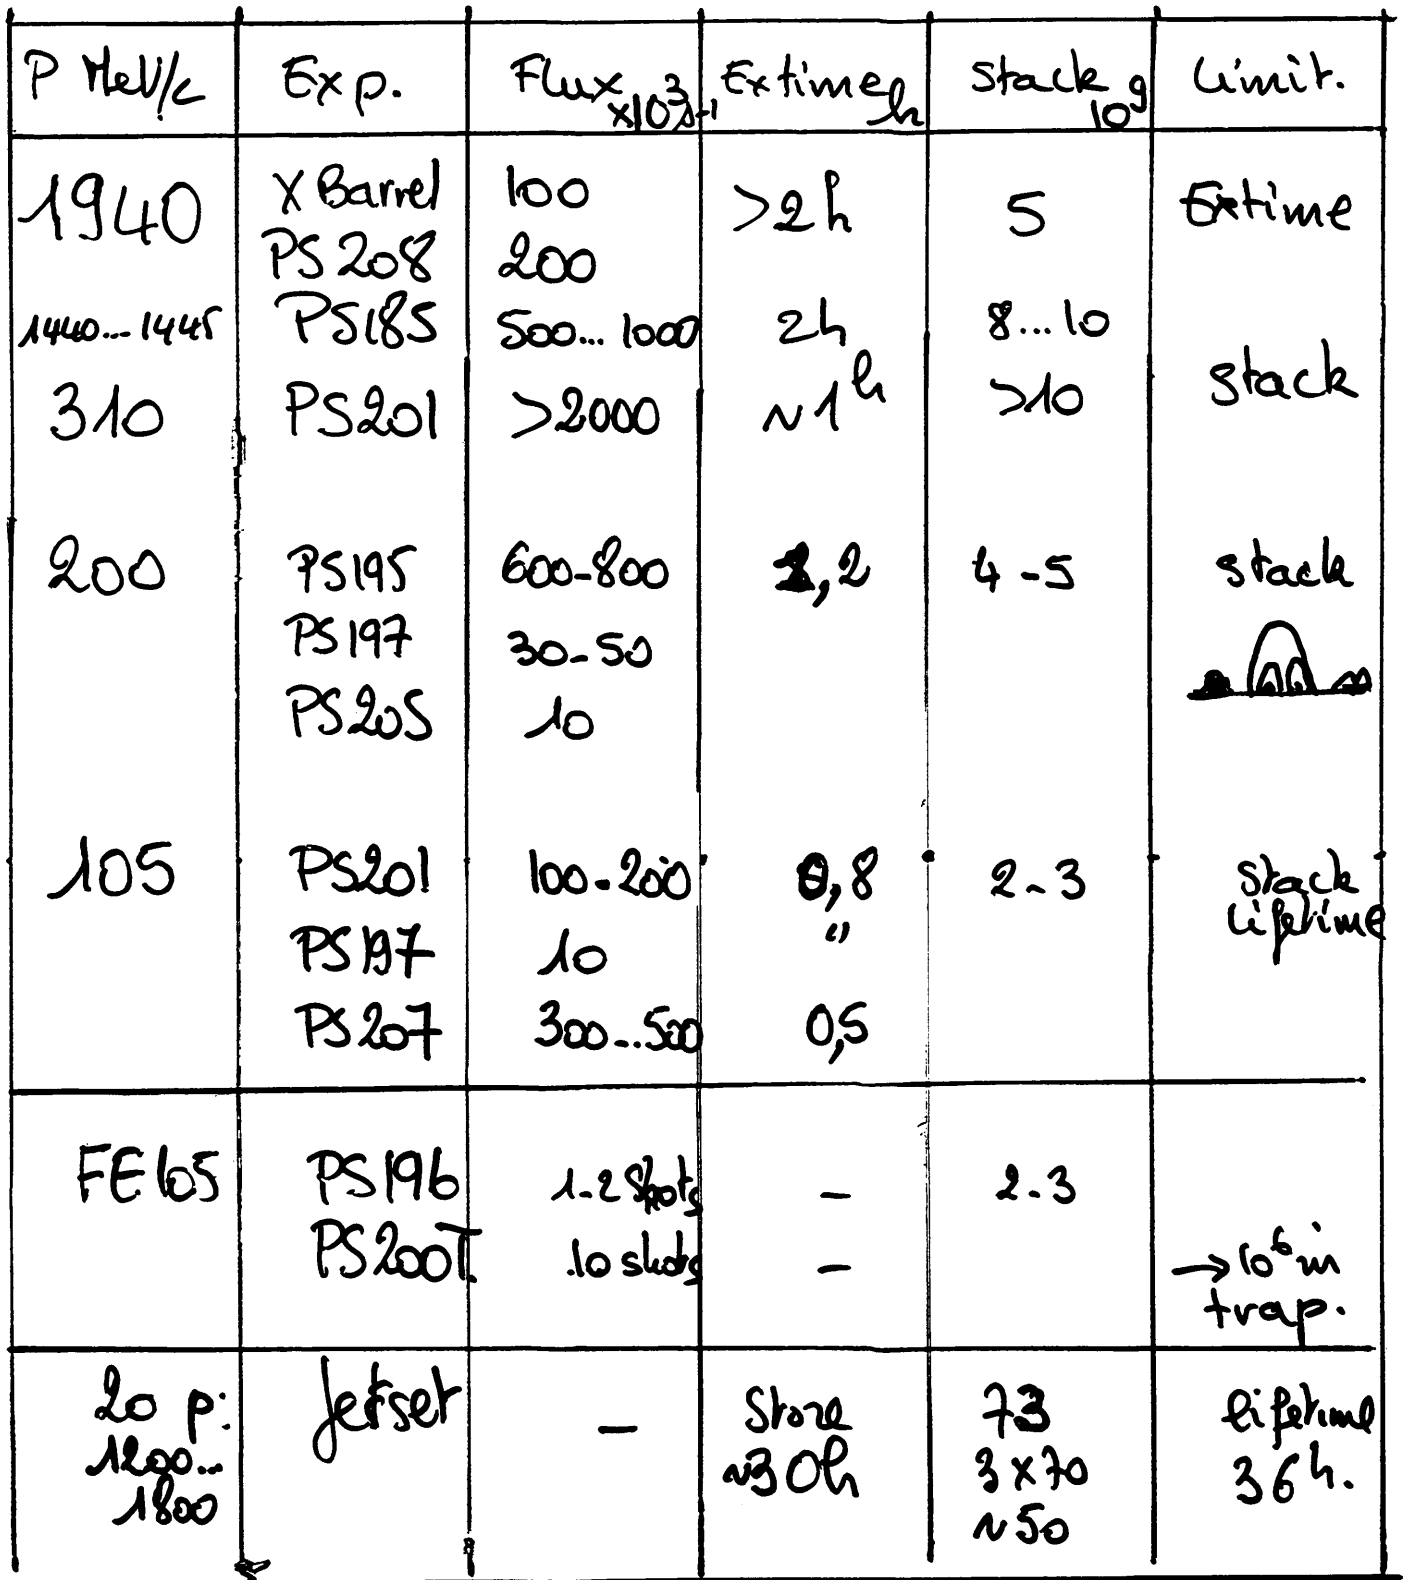 P MeV/c Exp. Flux x10³s⁻¹ Extime h Stack 10⁹ Limit.
1940 X Barrel 100 >2h 5 Extime
PS208 200
1440...1445 PS185 500...1000 2h 8...10
310 PS201 >2000 ~1h >10 stack
200 PS195 600-800 1,2 4-5 stack
PS197 30-50
PS205 10
105 PS201 100-200 0,8 2-3 Stack
lifetime
PS197 10 "
PS207 300...500 0,5
FE105 PS196 1-2 Shots - 2-3
PS200T 10 shots - → 10⁶ in
trap.
20 p: Jetset - Store 73 lifetime
1200... ~30h 3x70 36h.
1800 ~50